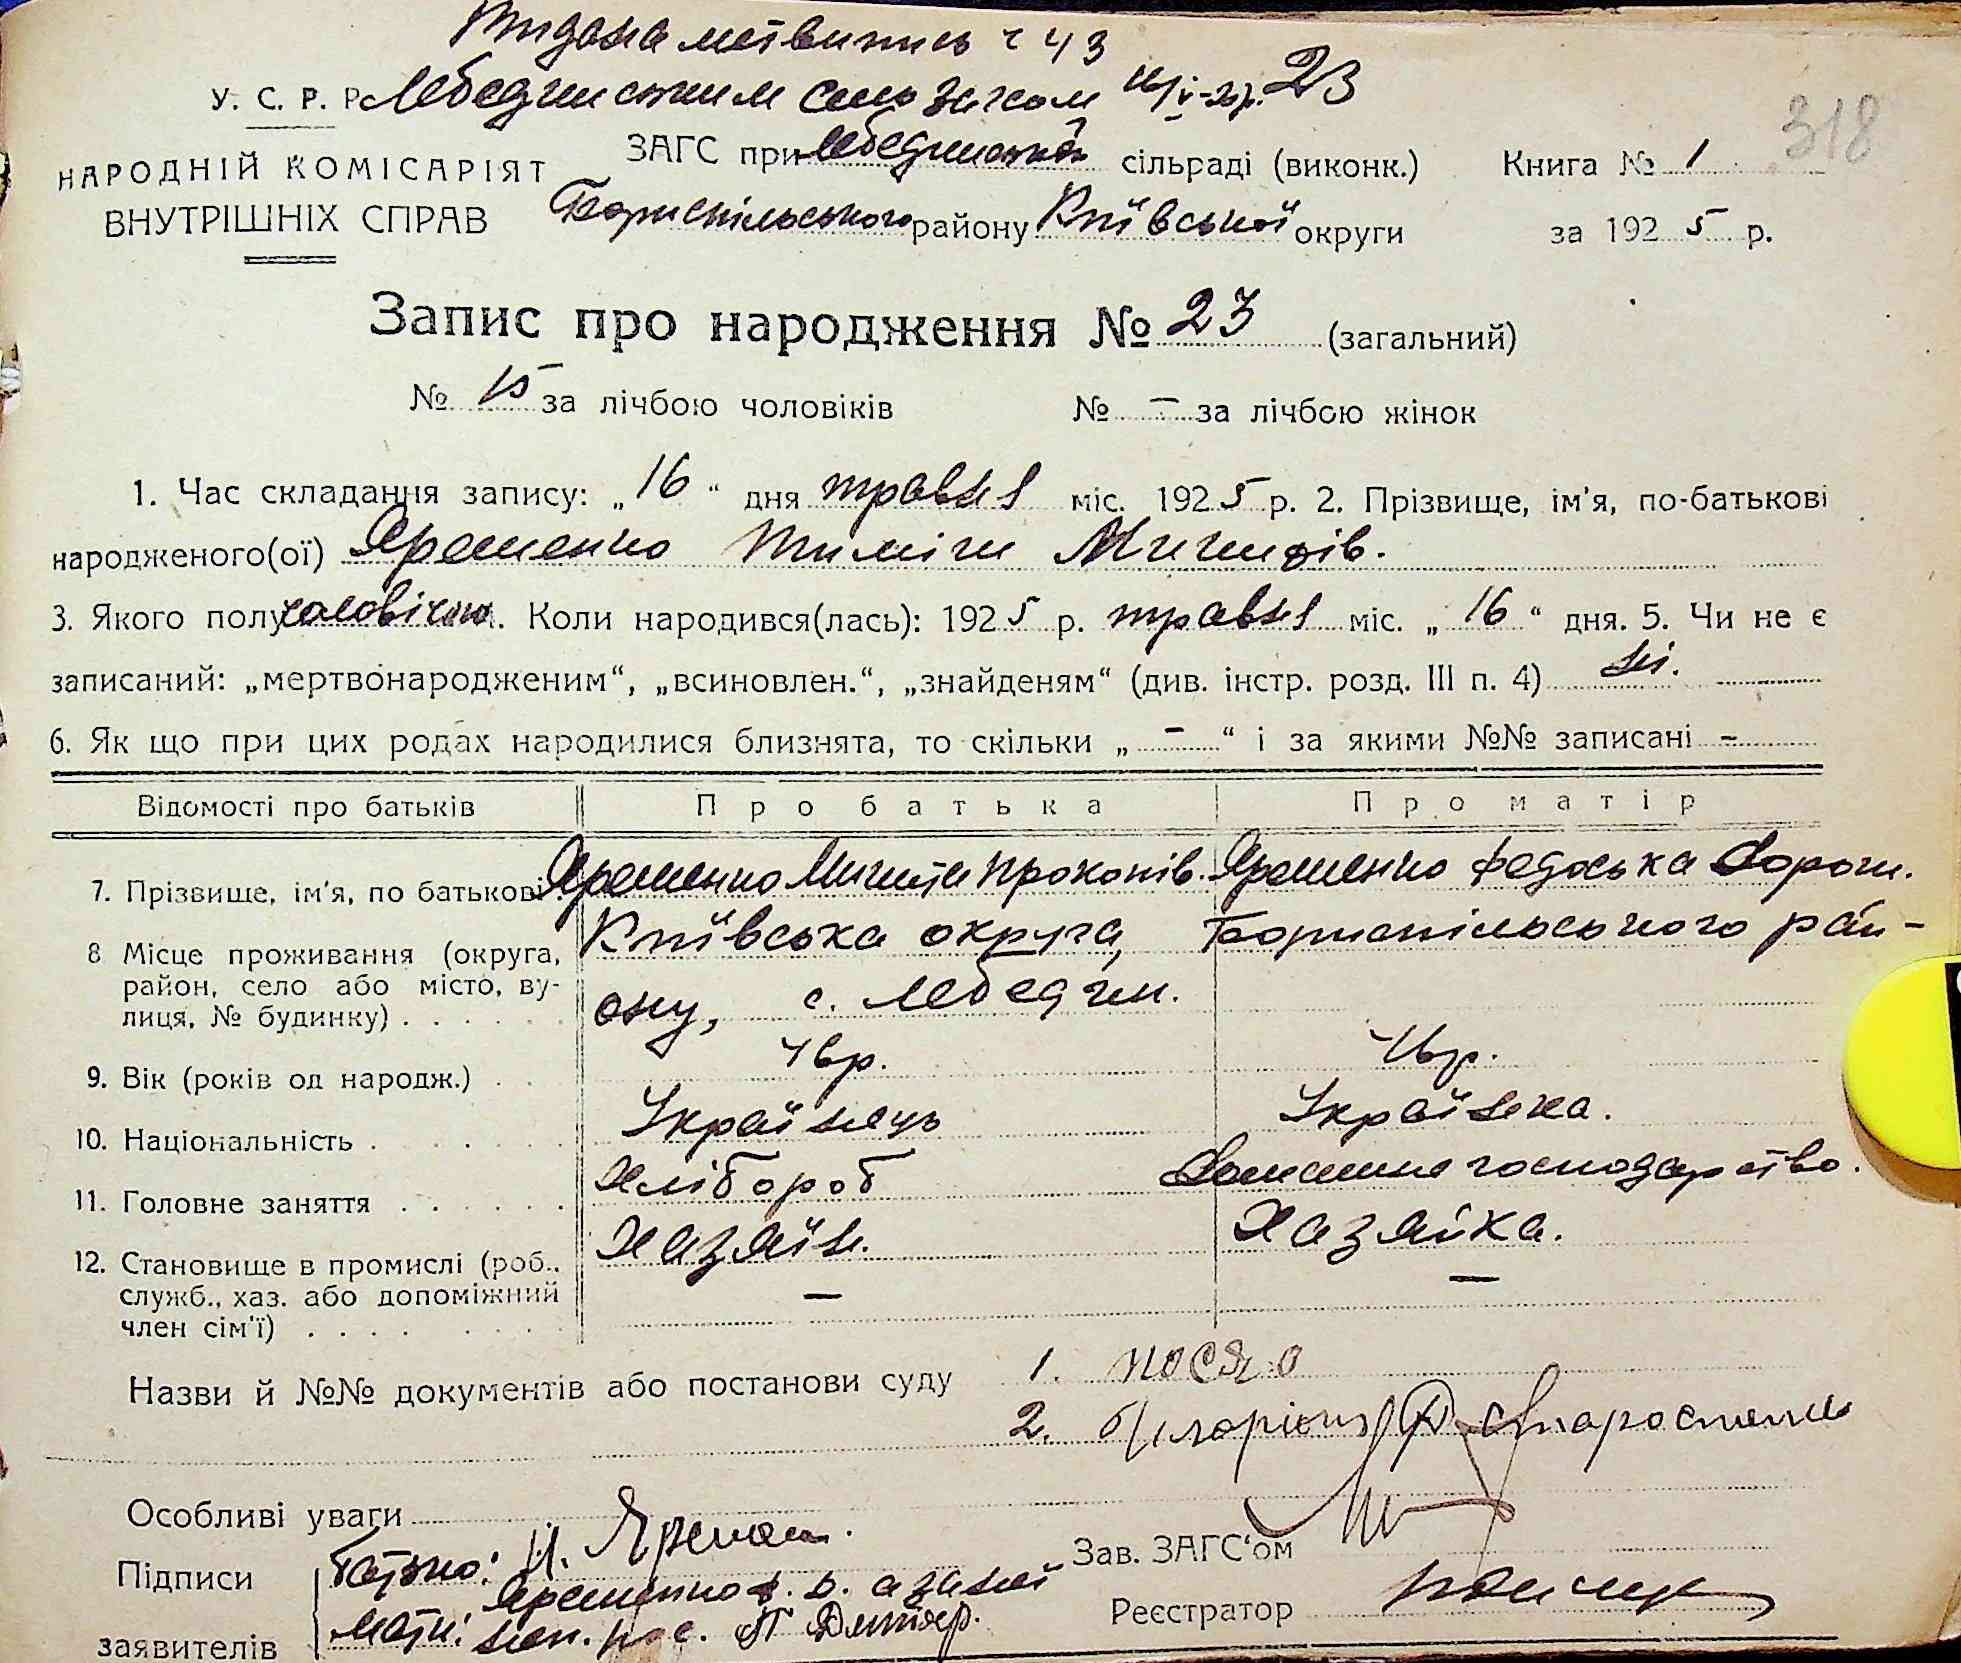 Видана метвипись ч 43
У. С. Р. Р. Лебединським сель загсом 23
НАРОДНІЙ КОМІСАРІЯТ
ВНУТРІШНІХ СПРАВ
ЗАГС при Лебединській сільраді (виконк.) Книга № 1 318
Бориспільського району Київської округи за 1925 р.
Запис про народження № 23 (загальний)
№ 15 за лічбою чоловіків № – за лічбою жінок
1. Час складання запису: „16“ дня травня міс. 1925 р. 2. Прізвище, ім'я, по-батькові
народженого(ої) Яременко Микитів.
3. Якого полу чоловічого. Коли народився(лась): 1925 р. травня міс. „16“ дня. 5. Чи не є
записаний: „мертвонародженим“, „всиновлен.“, „знайденям“ (див. інстр. розд. III п. 4) ні.
6. Як що при цих родах народилися близнята, то скільки „–“ і за якими №№ записані –
Відомості про батьків Про батька Про матір
7. Прізвище, ім'я, по батькові Яременко Микита Прокопів. Яременко Федоська
8 Місце проживання (округа, Київська округа, Бориспільського рай-
район, село або місто, ву-
лиця, № будинку) ону, с. Лебедин.
9. Вік (років од народж.) 46р. 41р.
10. Національність Українець Українка.
11. Головне заняття Хлібороб Домашнє господарство.
12. Становище в промислі (роб., Хазяїн. Хазяйка.
служб., хаз. або допоміжний — —
член сім'ї)
Назви й №№ документів або постанови суду 1.
2.
Особливі уваги
Підписи Батько: Яремен.
Зав. ЗАГС'ом
Яременко
заявителів Мати:
Реєстратор